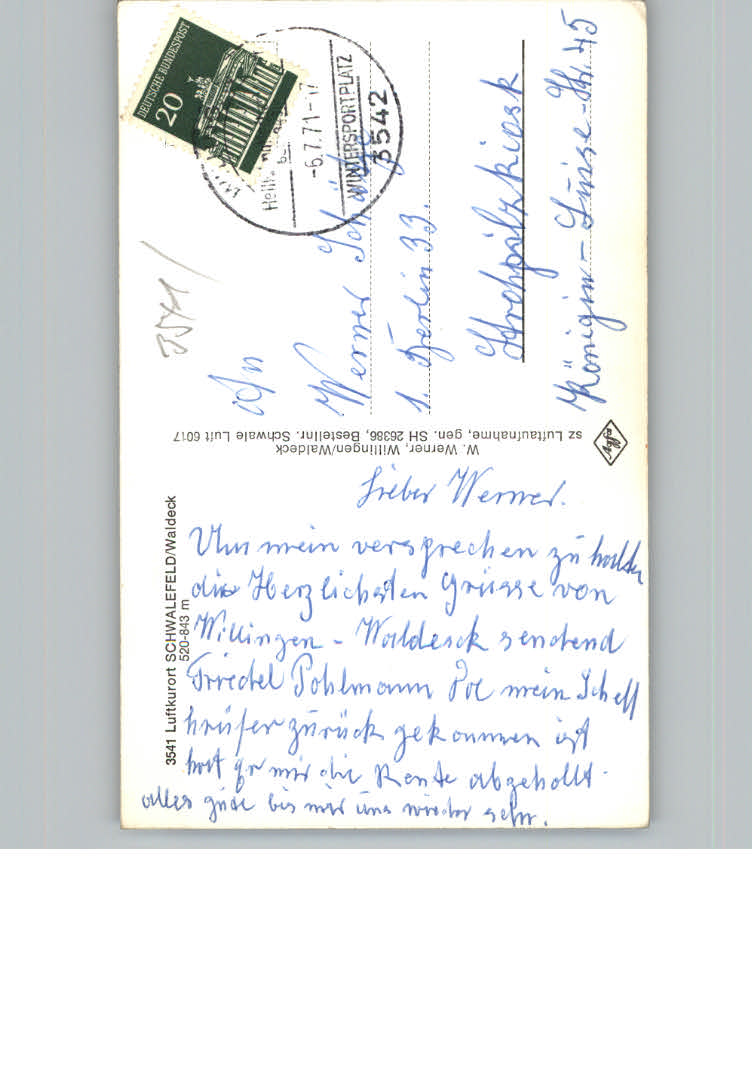 3541 Luftkurort SCHWALEFELD/Waldeck
520-843 m
Lieber Werner.
Um mein versprechen zu halten
die Herzlichsten Grüsse von
Willingen - Waldeck sendend
Friedel Pohlmann mein Scheff
zurück gekommen ist
hat Er mir die Rente abgehollt.
alles gute bis wir uns wieder sehn.
W. Werner, Willingen/Waldeck
sz Luftaufnahme, gen. SH 26386, Bestellnr. Schwale Luft 6017
Agfa
3541
DEUTSCHE BUNDESPOST
20
-6.7.71-17
WINTERSPORTPLATZ
3542
An
Werner
1. Berlin 33.
Strohpilzkiosk
Königin-Luise-Str. 45